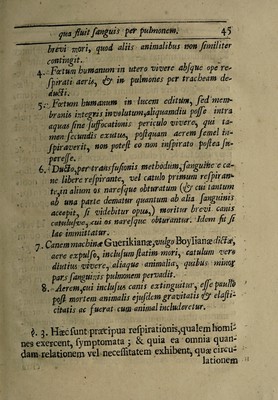 qua fluit sanguis per pulmonem. 45
brevi mori, quod aliis animalibus non similiter
contingit.
4. Fœtum humanum in utero vivere absque ope re-
spirati aeris, & in pulmones per tracheam de-
ducti.
5. Fœtum humanum in lucem editum, sed mem-
branis integris involutum, aliquamdiu posse intra
aquas sine suffocationis periculo vivere, qui ta-
men secundis exutus, postquam aerem semel in-
spiraverit, non potest eo non inspirato postea su-
peresse.
6. Ducto, per transfusionis methodum, sanguine e ca-
ne libere respirante, vel catulo primum respiran-
te, in alium os naresque obturatum (& cui tantum
ab una parte dematur quantum ab alia sanguinis
accepit, si videbitur opus,) moritur brevi canis
catulusve, cui os naresque obturantur. Idem fit si
lac immittatur.
7. Canem machinæ Guerikianæ, vulgo Boylianæ dictæ,
aere expulso, inclusum statim mori, catulum vero
diutius vivere, aliaque animalia, quibus minor
pars sanguinis pulmonem pervadit.
8. Aerem, cui inclusus canis extinguitur, esse paullo
post mortem animalis ejusdem gravitatis & elasti-
citatis ac fuerat cum animal includeretur.
§. 3. Hæc sunt præcipua respirationis, qualem homi-
nes exercent, symptomata; & quia ea omnia quan-
dam relationem vel necessitatem exhibent, quæ circu-
lationem